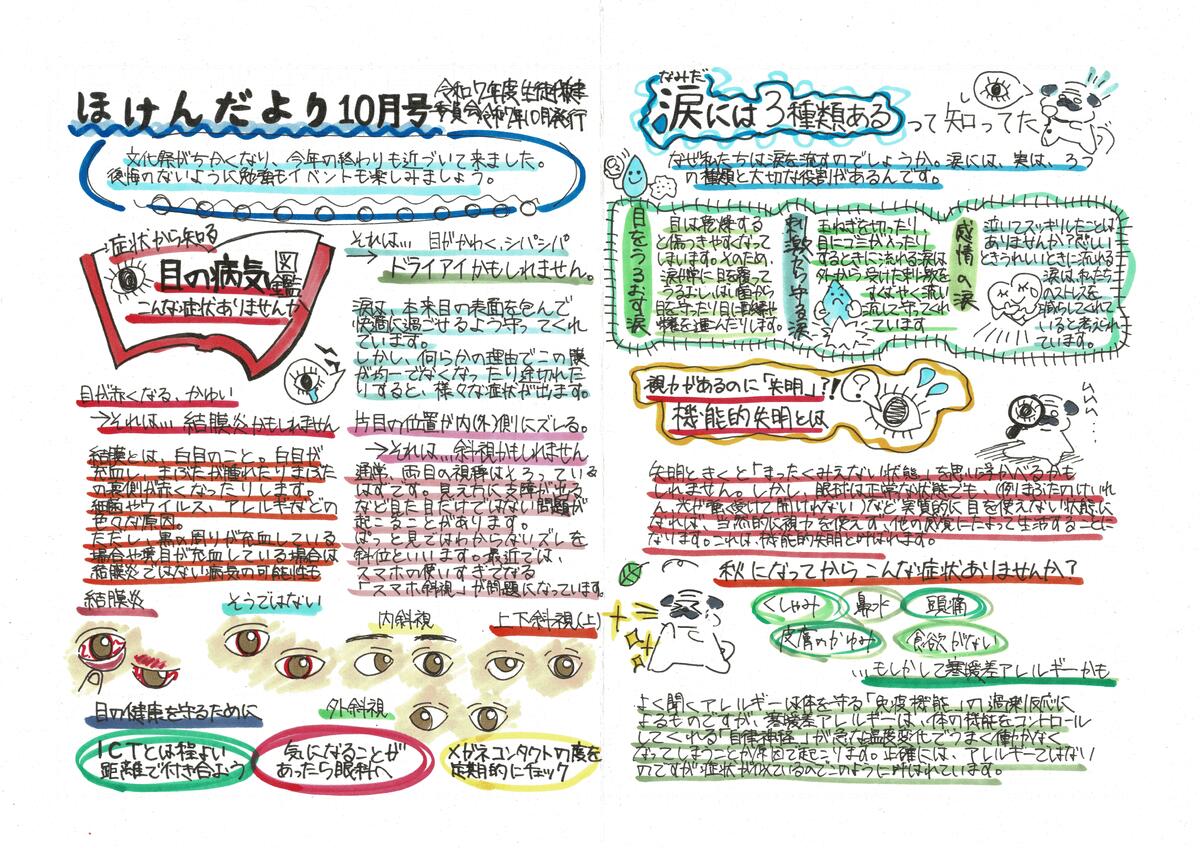 ほけんだより10月号
令和7年度生徒保健
委員会 令和7年10月発行
文化祭がちかくなり、今年の終わりも近づいて来ました。
後悔のないように勉強もイベントも楽しみましょう。
症状から知る
目の病気図鑑
こんな症状ありませんか
目が赤くなる、かゆい
→それは… 結膜炎かもしれません
結膜とは、白目のこと。白目が
充血し、まぶたが腫れたりまぶた
の裏側が赤くなったりします。
細菌やウイルス、アレルギーなどの
色々な原因。
ただし、黒の周りが充血している
場合や葉目が充血している場合は
結膜炎ではない病気の可能性も
結膜炎
そうではない
それは… 目がかわく、シパシパ
→ドライアイかもしれません。
涙は、本来目の表面を包んで
快適に過ごせるよう守ってくれ
ています。
しかし、何らかの理由でこの膜
が均一でなくなったり途切れた
りすると、様々な症状が出ます。
片目の位置が内(外)側にズレる。
→それは… 斜視かもしれません
通常、両目の視線はそろっている
はずです。見え方に支障が出る
など見た目だけではない問題が
起こることがあります。
ぱっと見ではわからないズレを
斜位といいます。最近では、
スマホの使いすぎでなる
「スマホ斜視」が問題になっています。
内斜視
上下斜視(上)
外斜視
目の健康を守るために
ICTとは程よい
距離で付き合よう
気になることが
あったら眼科へ
メガネコンタクトの度を
定期的にチェック
なみだ
涙には3種類ある
って知ってた
なぜ私たちは涙を流すのでしょうか。涙には、実は、3つ
の種類と大切な役割があるんです。
目をうるおす涙
目は乾燥する
と傷つきやすくなって
しまいます。そのため、
涙が常に目を覆って
うるおし、ばい菌から
目を守ったり目に酸素や
栄養を運んだりします。
刺激から守る涙
玉ねぎを切ったり
目にゴミが入ったり
するときに流れる涙は
外から受けた刺激を
すばやく洗い
流して守ってくれ
ています
感情の涙
泣いてスッキリしたことは
ありませんか?悲しい
ときうれしいときに流れる
涙は、私たち
のストレスを
減らしてくれて
いると考えられ
ています。
視力があるのに「失明」?!
機能的失明とは
?
失明ときくと「まったくみえない状態」を思い浮かべるかも
しれません。しかし、眼球は正常な状態でも、(例:まぶたのけいれ
ん、光が強く感じて開けられない)など実質的に目を使えない状態に
なれば、当然的に視力を使えず、他の感覚にたよって生活することに
なります。これは、機能的失明と呼ばれます。
秋になってからこんな症状ありませんか?
くしゃみ
鼻水
頭痛
皮膚のかゆみ
食欲がない
…もしかして寒暖差アレルギーかも
よく聞くアレルギーは体を守る「免疫機能」の過剰反応に
よるものですが、寒暖差アレルギーは、体の機能をコントロール
してくれる「自律神経」が急な温度変化でうまく働かなく
なってしまうことが原因で起こります。正確には、アレルギーではない
のですが症状が似ているのでこのように呼ばれています。